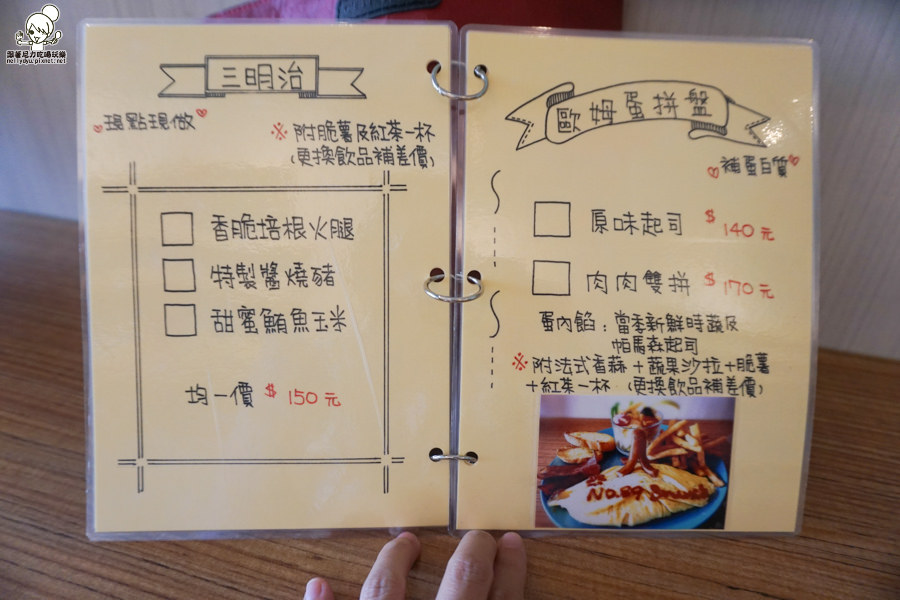 跟著尼力吃喝玩樂
nellydyu.pixnet.net
三明治
現點現做
※附脆薯及紅茶一杯
(更換飲品補差價)
香脆培根火腿
特製醬燒豬
甜蜜鮪魚玉米
均一價 $150元
歐姆蛋拼盤
補蛋白質
原味起司 $140元
肉肉雙拼 $170元
蛋內餡:當季新鮮時蔬及
帕馬森起司
※附法式香蒜+蔬果沙拉+脆薯
+紅茶一杯 (更換飲品補差價)